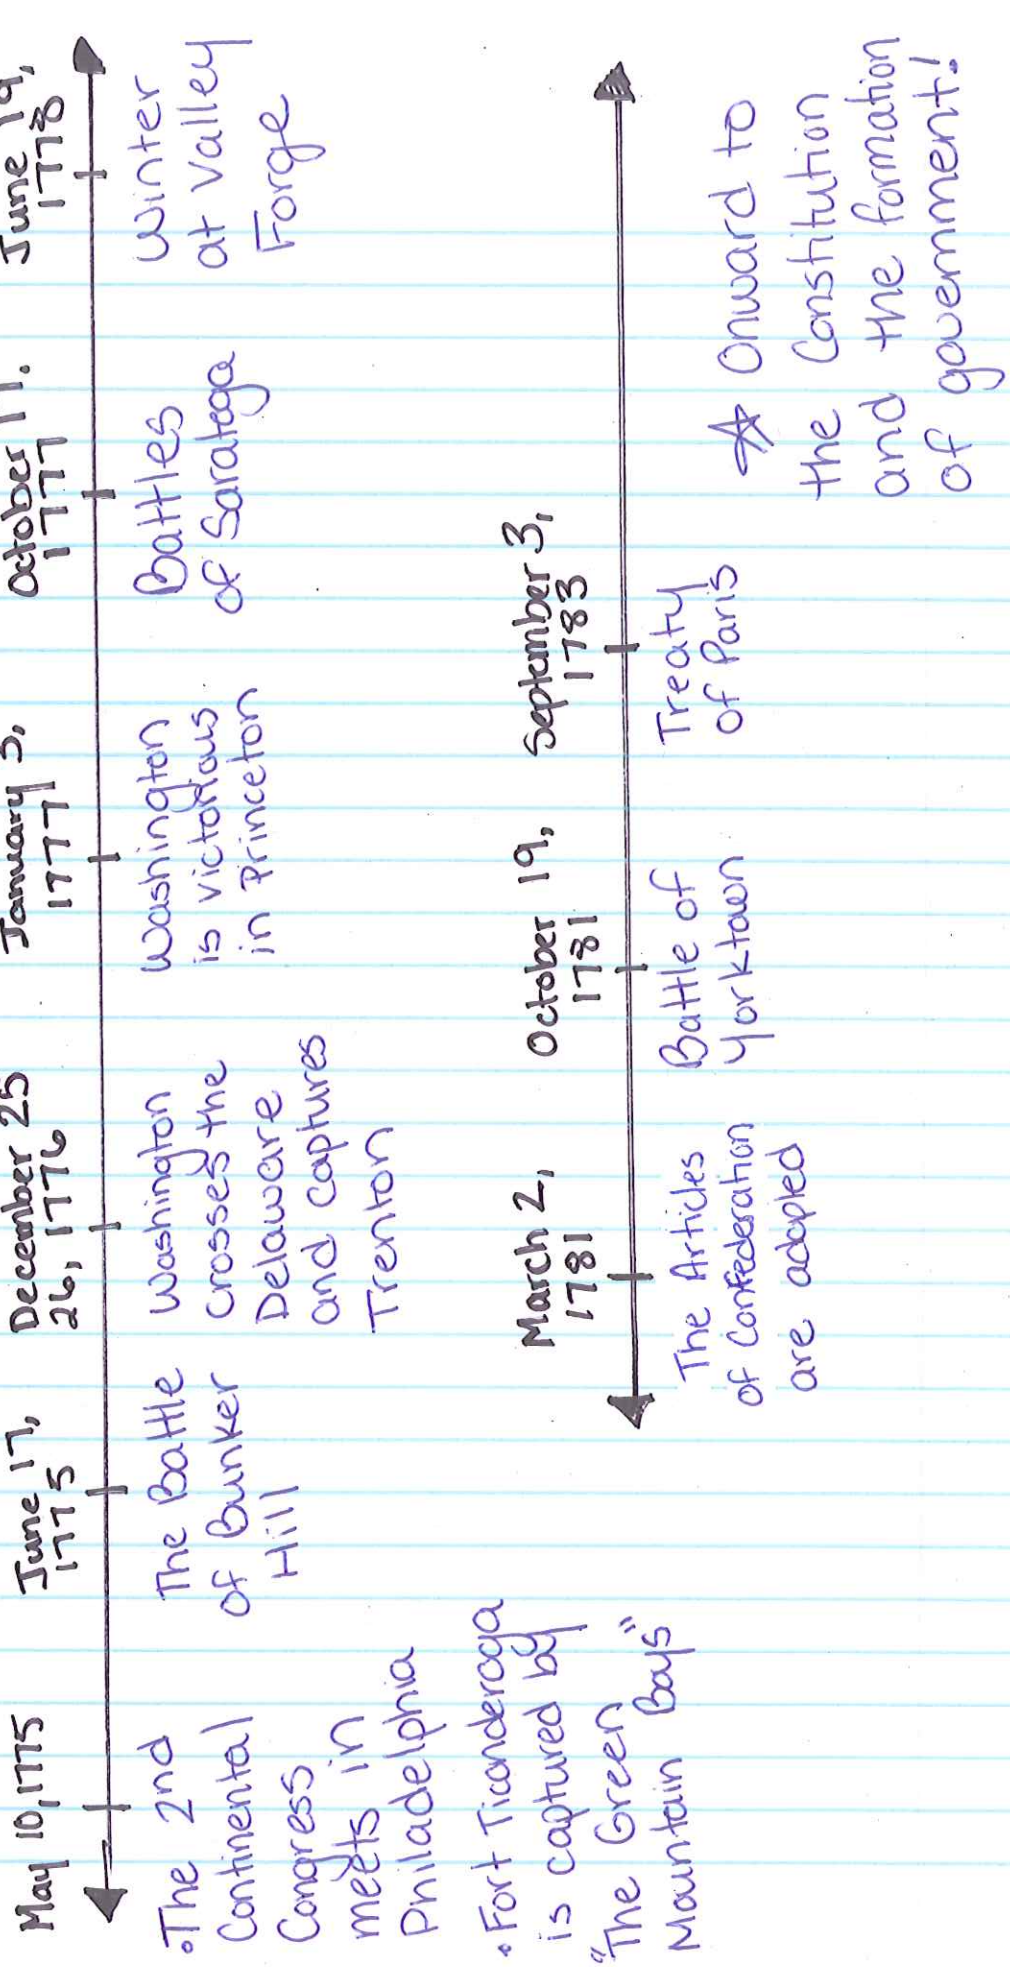 May 10, 1775
• The 2nd
Continental
Congress
meets in
Philadelphia
• Fort Ticonderoga
is captured by
"The Green
Mountain Boys"
June 17,
1775
The Battle
of Bunker
Hill
December 25
26, 1776
Washington
crosses the
Delaware
and captures
Trenton
January 3,
1777
Washington
is victorious
in Princeton
October 17.
1777
Battles
of Saratoga
June 19,
1778
Winter
at Valley
Forge
March 2,
1781
The Articles
of Confederation
are adopted
October 19,
1781
Battle of
Yorktown
September 3,
1783
Treaty
of Paris
☆ Onward to
the Constitution
and the formation
of government!